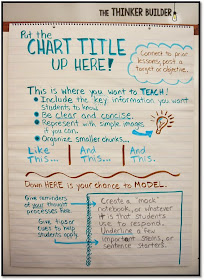 THE THINKER BUILDER
Put the
CHART TITLE
UP HERE!
Connect to prior
lessons; post a
target or objective.
This is where you want to TEACH!
Include the key information you want
students to know.
Be clear and concise.
Represent with simple images
if you can.
Organize smaller chunks...
Like This...
And This...
And This.
Down HERE is your chance to MODEL.
Give reminders
of your thought
processes here.
Give teaser
cues to help
students apply.
Create a "mock"
notebook, or whatever
it is that students
use to respond.
Underline a few
important steps, or
sentence starters.